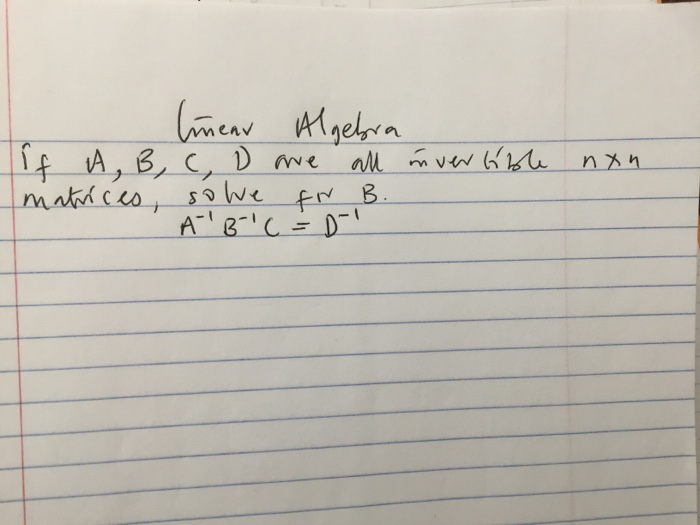 Linear Algebra
If A, B, C, D are all invertible n×n
matrices, solve for B.
A⁻¹ B⁻¹ C = D⁻¹